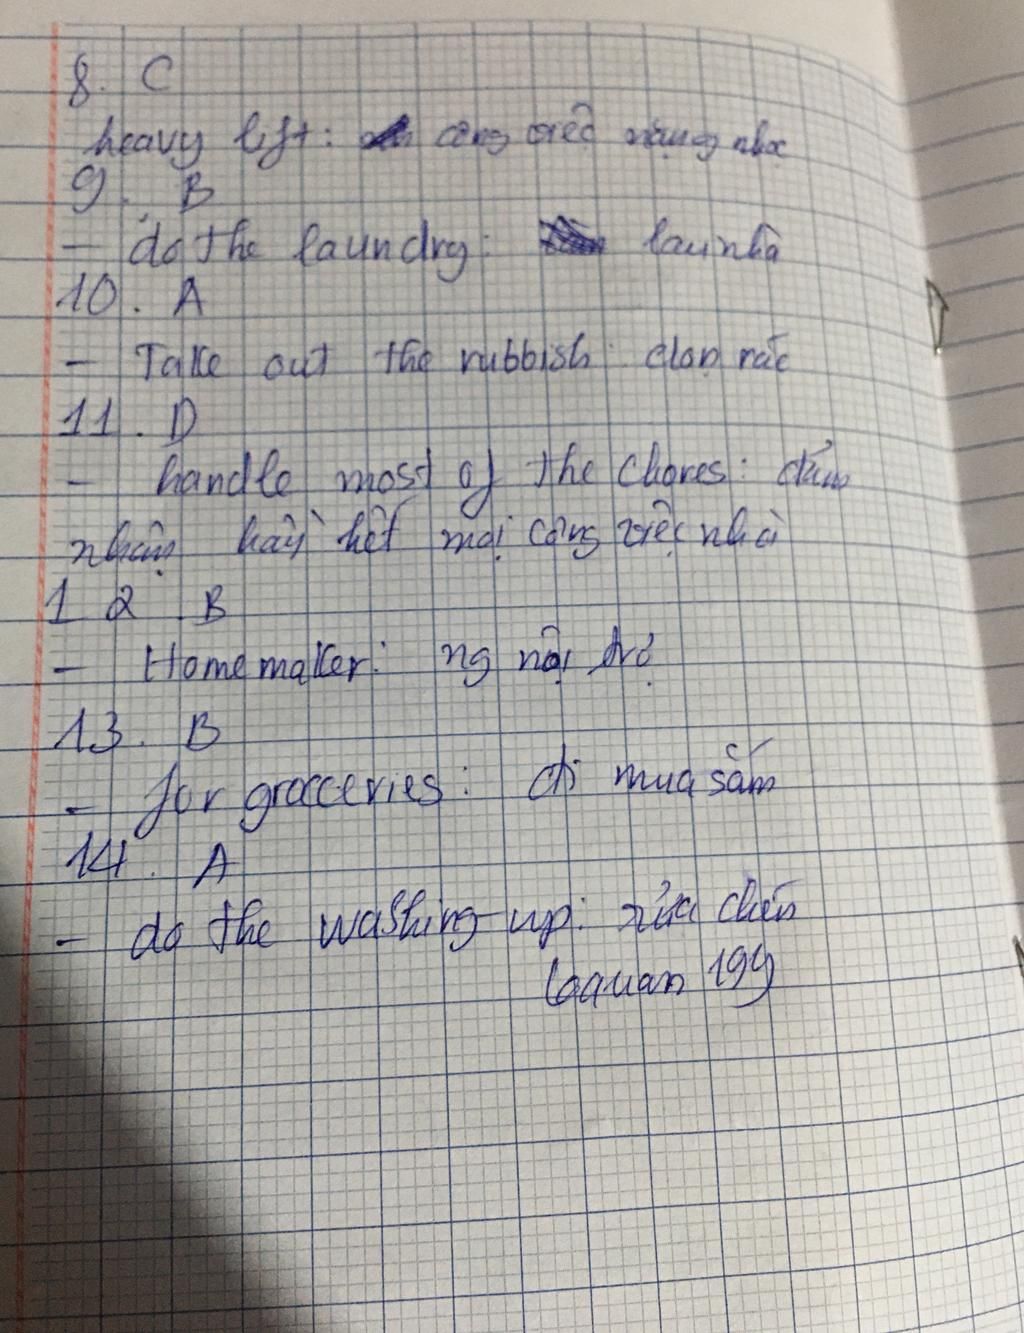 8. C
heavy lift: công việc nặng nhọc
9. B
- do the laundry: lau nhà
10. A
- Take out the rubbish: dọn rác
11. D
- handle most of the chores: đảm
nhận hầy hết mọi công việc nhà
12 B
- Homemaker: ng nội trợ
13. B
- for grocceries: đi mua sắm
14. A
- do the washing-up: rửa chén